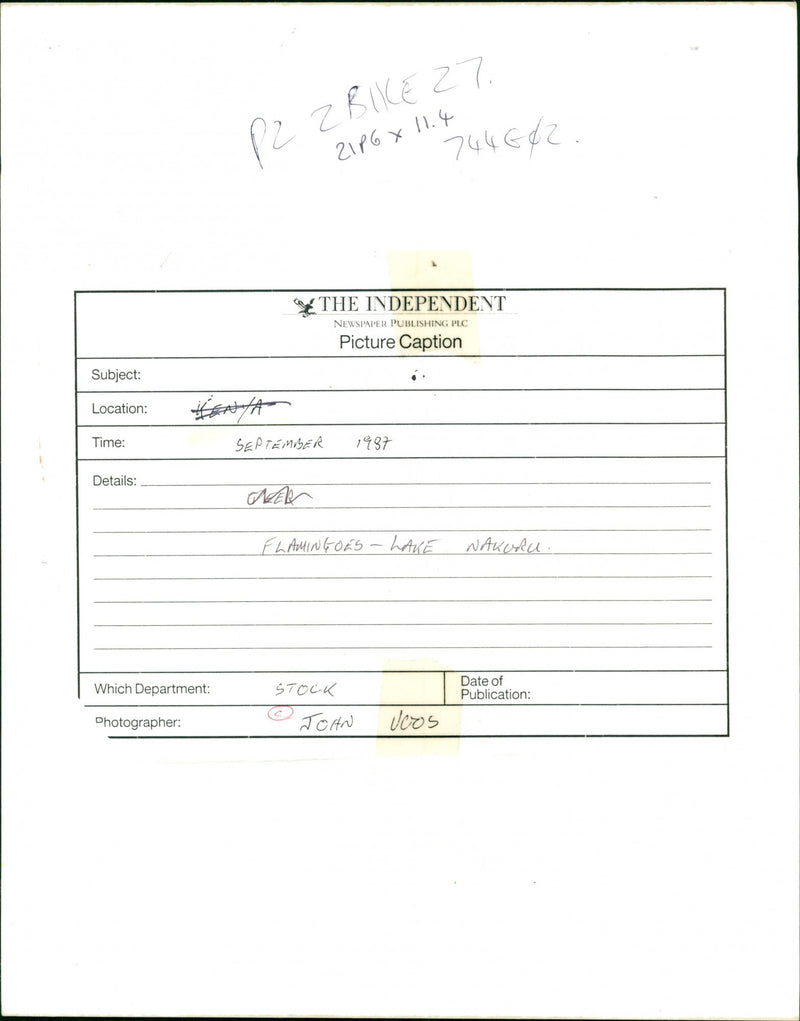 P2 2BIKE27.
21P6 x 11.4
THE INDEPENDENT
NEWSPAPER PUBLISHING PLC
Picture Caption
Subject:
Location: KENYA
Time: SEPTEMBER 1987
Details:
FLAMINGOES - LAKE NAKURU.
Which Department: STOCK
Date of
Publication:
Photographer: © JOAN VOOS